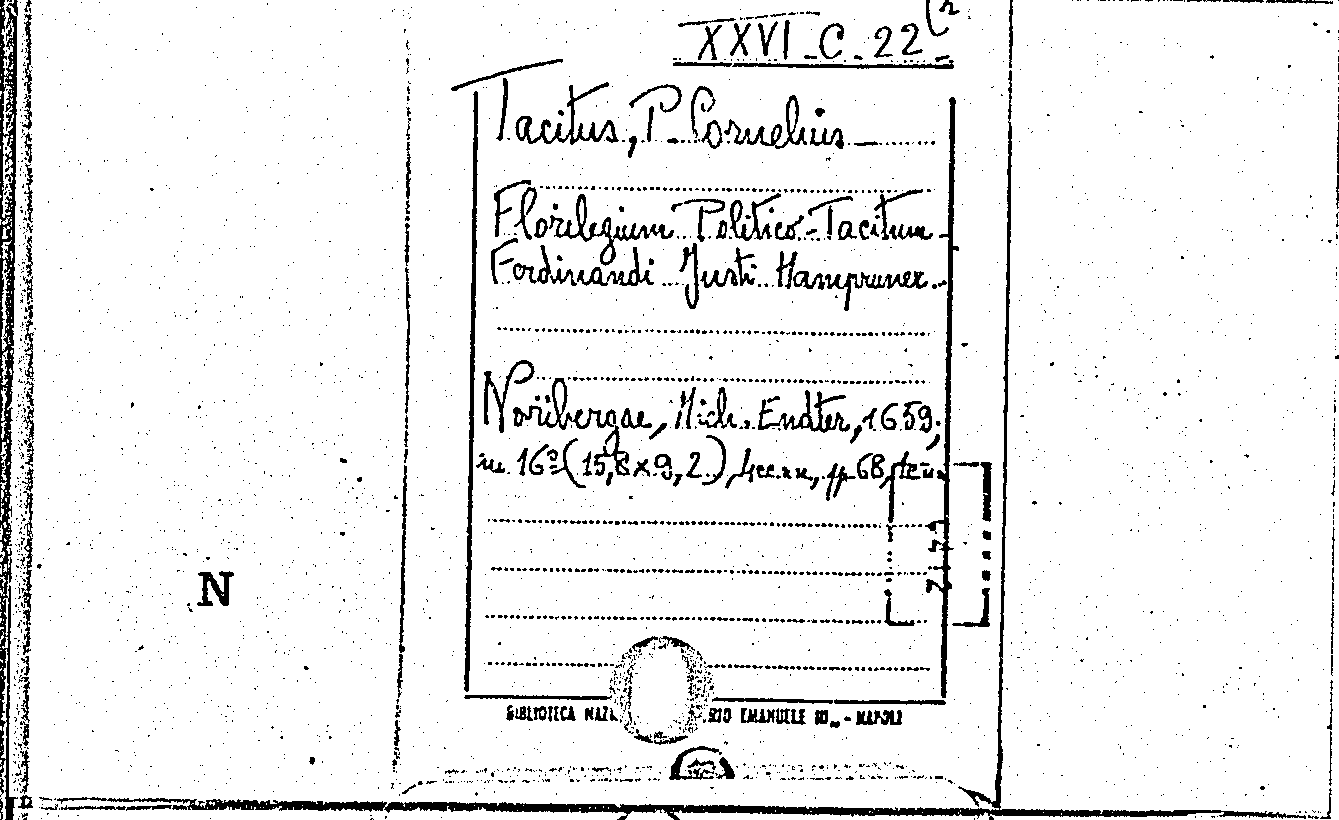 XXVI C. 22
Tacitus, P. Cornelius
Florilegium Politico-Tacitum
Ferdinandi Justi Hampruner.
Noribergae, Mich. Endter, 1659;
in 16º (15,8 x 9,2), 4 cc. nn, pp. 68,
N
BIBLIOTECA NAZ EMANUELE III - NAPOLI